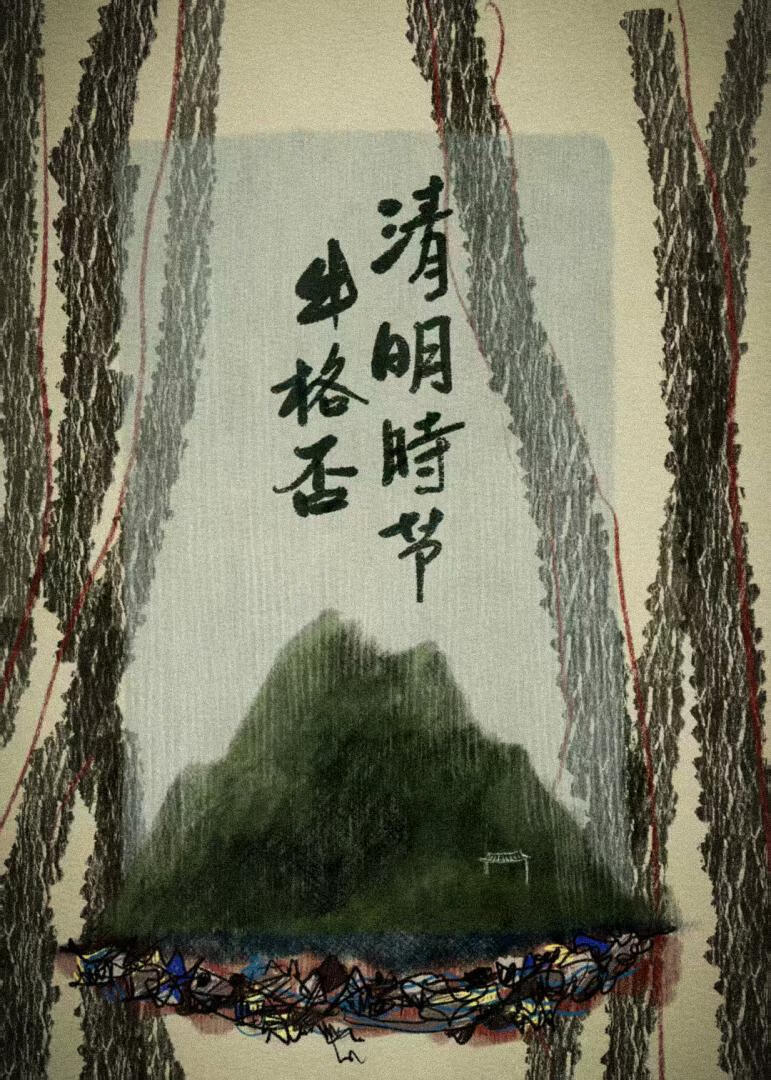 清明時节
格否